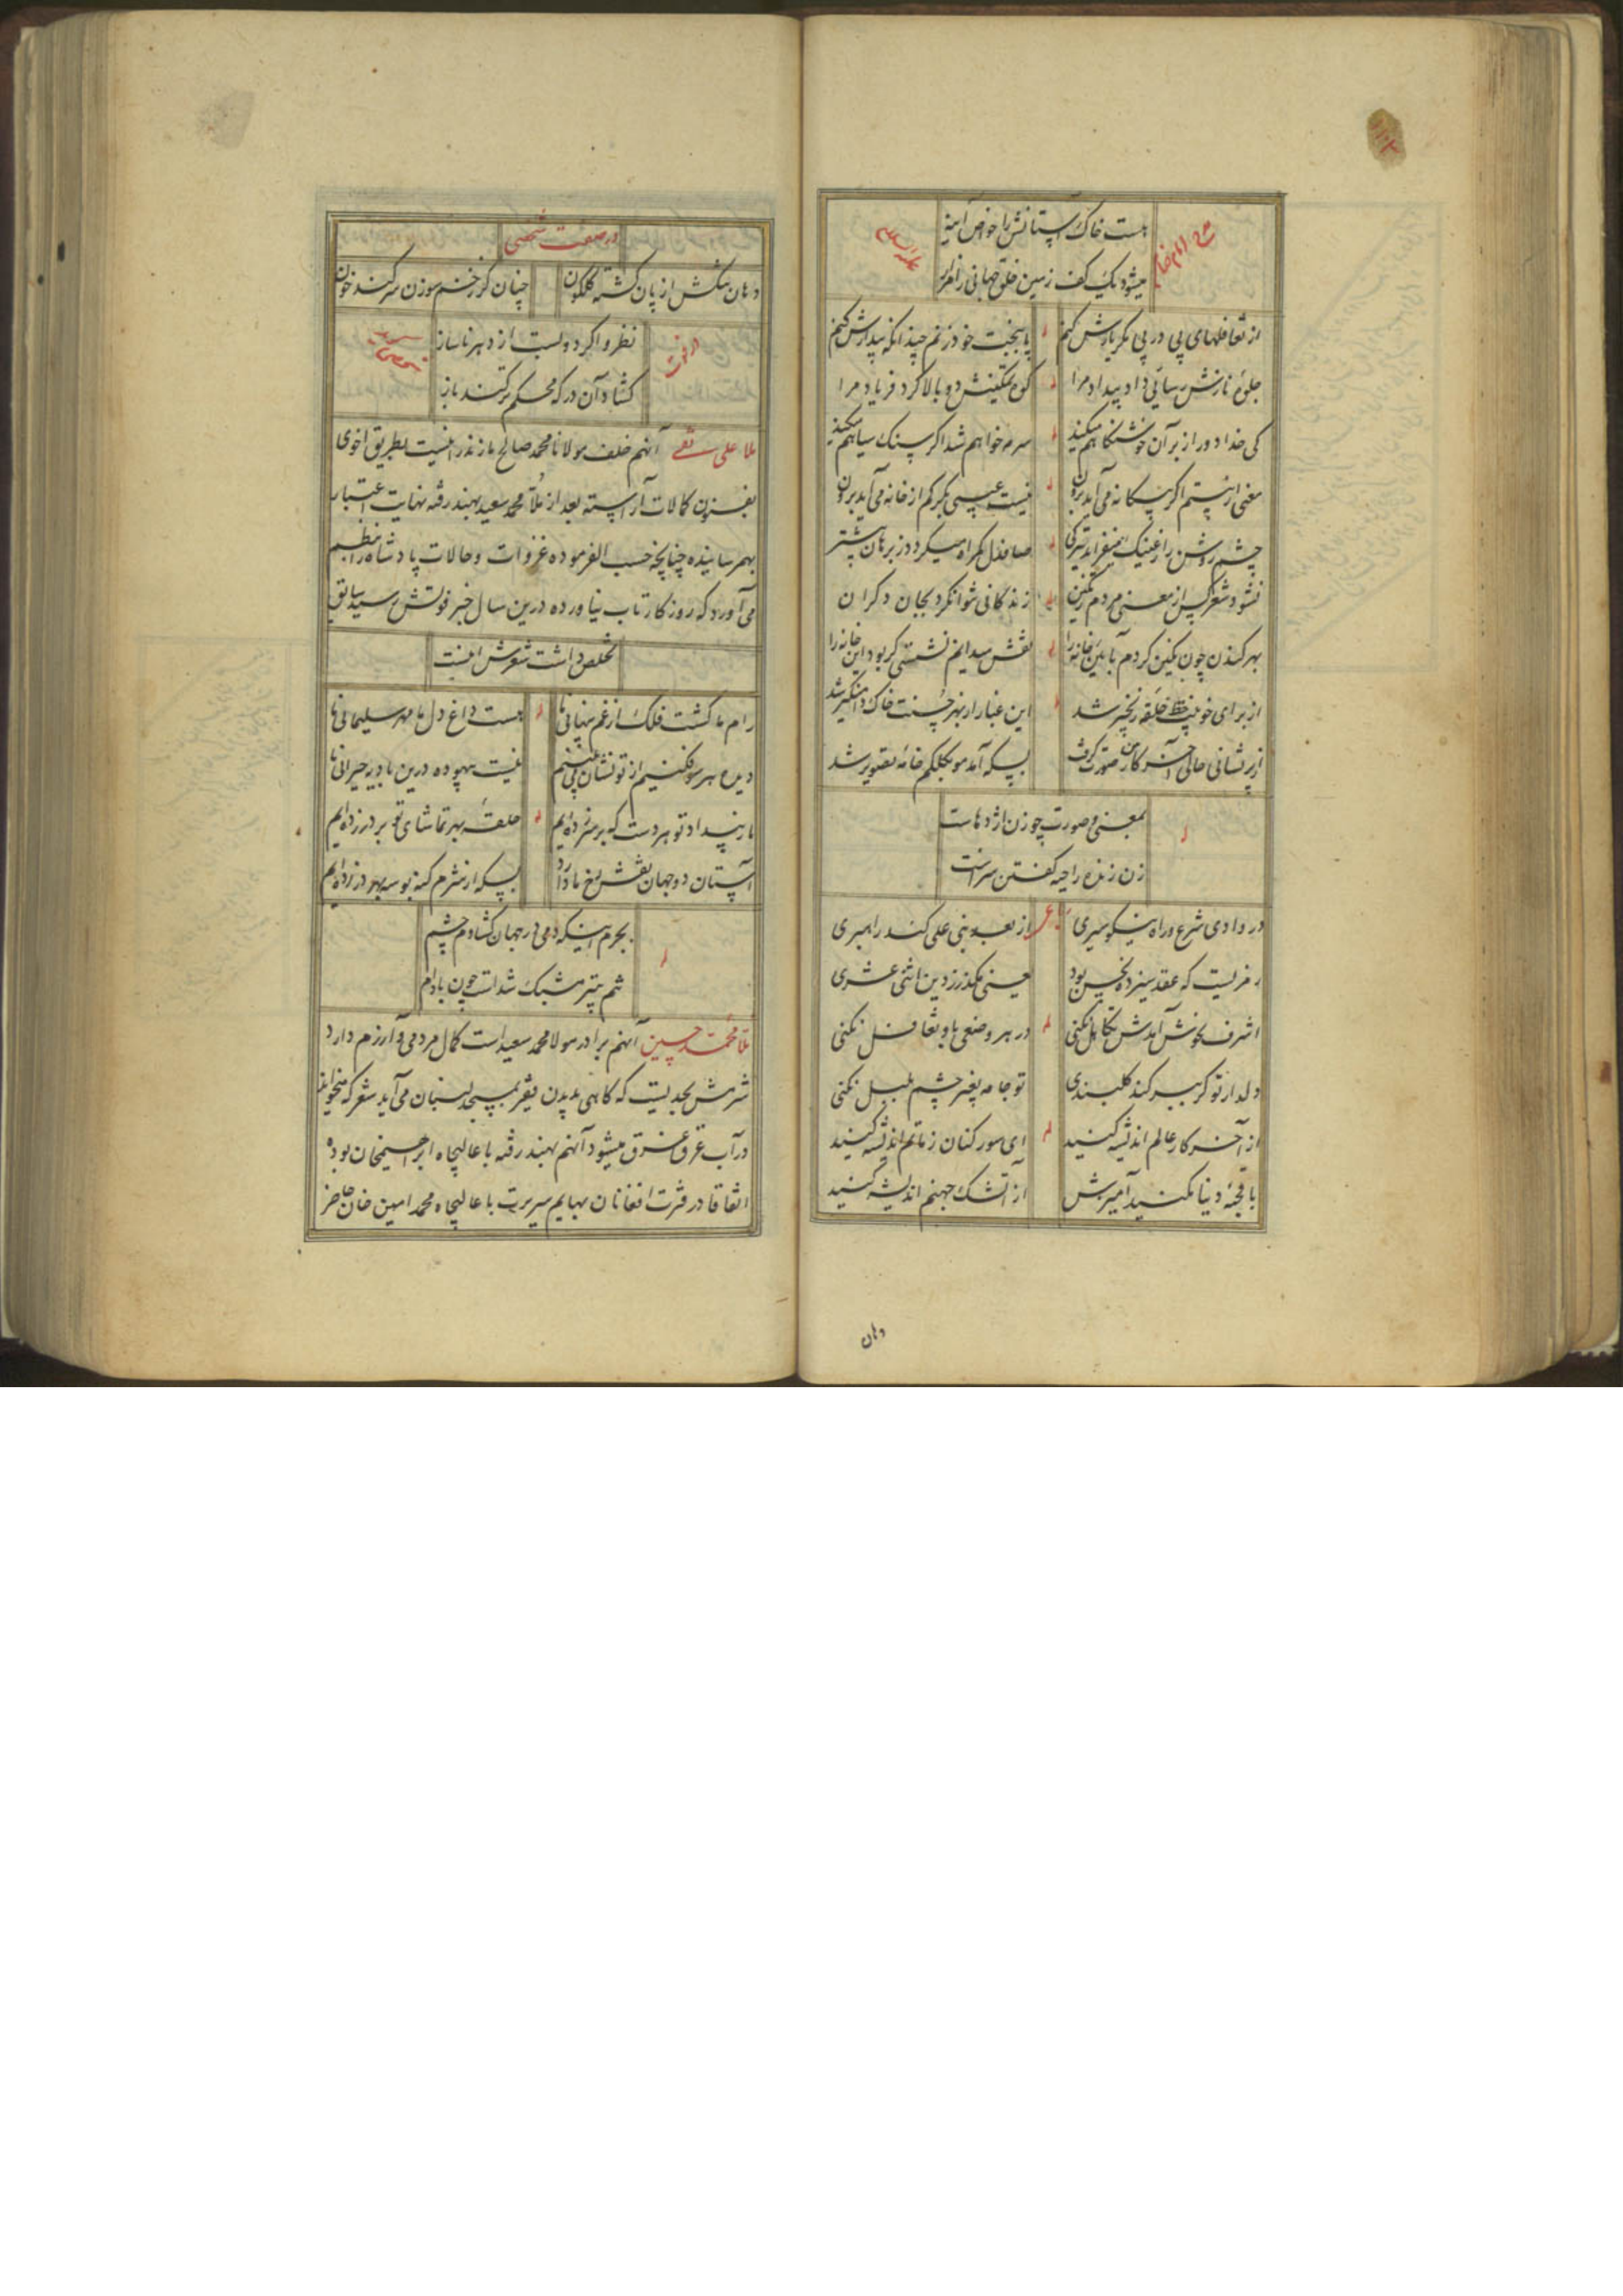 هست خاک آستانش را خواص آینه
مدح امام رضا
علیه السلام
میشود یک کف زمین خلق جهانی را
از تغافلهای پی در پی مگر یارش کنم
پا ببخت خود زنم چندانکه بیدارش کنم
جلوهٔ نازش رسائی داد بیداد مرا
کوه تمکینش دو بالا کرد فریاد مرا
کی خدا دور از بر آن خوش نگاهم میکند
سرمه خواهم شد اگر سنگ سیاهم میکند
معنی از بستم اگر بیگانه می آید برون
نیست عیبی بکر کم از خانه می آید برون
چشم روشن را ز عینک میفزاید تیرگی
صافدل گمراه میگردد ز برهان بیشتر
نشود شعر کس از معنی مردم رنگین
زندگانی نتوان کرد بجان دگران
بهر کندن چون نگین کردم آیین خانه را
نقش میدانم نشستی گر بود این خانه را
از برای خونیت خط حلقهٔ زنجیر شد
این غبار از بهر حسنت خاک دامنگیر شد
از پریشانی حالی آخر کار من صورت گرفت
بسکه آمد مو بکلکم خامهٔ تصویر شد
بمعنی و صورت چو زن اژدهاست
زن زنده را حیه گفتن سزاست
در وادی شرع و راه نیکو سیری
از بعد نبی علی کند راهبری
رمزیست که عقد سیزده نحس بود
یعنی مگذر ز دین اثنی عشری
اشرف بخوش آمدش تکاهل نکنی
در هر وضعی باو تغافل نکنی
دلدار تو گر بسر کند گلبندی
تو جامه بغیر چشم بلبل نکنی
از آخر کار عالم اندیشه کنید
ای سور کنان ز ماتم اندیشه کنید
با قحبهٔ دنیا مکنید آمیزش
از آتشک جهنم اندیشه کنید
دهان
در صفت شخصی
دهان تنگش از پان گشته گلگون
چنان کز زخم سوزن سر کند خون
نظر وا کرد و بست از دهر ناساز
گشاد آن در که محکم تر کنند باز
ملا علی نقی آنهم خلف مولانا محمد صالح مازندرانیست بطریق اخوی
بفنون کمالات آراسته بعد از ملا محمد سعید بهند رفته نهایت اعتبار
بهم رسانیده چنانچه حسب الفرموده غزوات و حالات پادشاه را بنظم
می آورد که روزگار تاب نیاورده درین سال خبر فوتش رسید سابق
تخلص داشت شعرش اینست
رام ما گشت فلک از غم پنهانی ما
هست داغ دل ما مهر سلیمانی ما
دیده هر سو فکنیم از تو نشان می بینیم
نیست بیهوده درین بادیه حیرانی ما
ما ز بیداد تو هر دست که بر سر زده ایم
حلقهٔ بهر تماشای تو بر در زده ایم
آستان دو جهان نقش رخ ما دارد
بسکه از شرم گنه بوسه بهر در زده ایم
بجرم اینکه دمی در جهان گشادم چشم
تنم بتیر مشبک شدست چون بادام
ملا محمد حسین آنهم برادر مولا محمد سعید است کمال مردمی و آرزم دارد
شرمش بحدیست که گاهی بدیدن فقیر بمسجد لنبان می آید شعر که میخواند
در آب عرق غرق میشود آنهم بهند رفته با عالیجاه ابراهیمخان بوده
اتفاقا در فترت افغانان بهایم سیرت با عالیجاه محمد امین خان حاضر